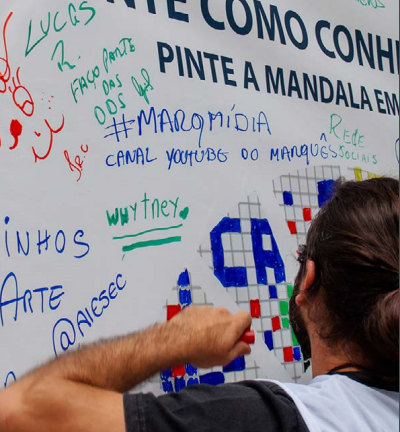 NTE COMO CONH
PINTE A MANDALA EM
LUCAS
R.
FAÇO PARTE
DAS
ODS
#MARQMÍDIA
CANAL YOUTUBE DO MARQUÊS
REDE
SOCIAIS
WHYTNEY
INHOS
ARTE
@AIESEC
CA